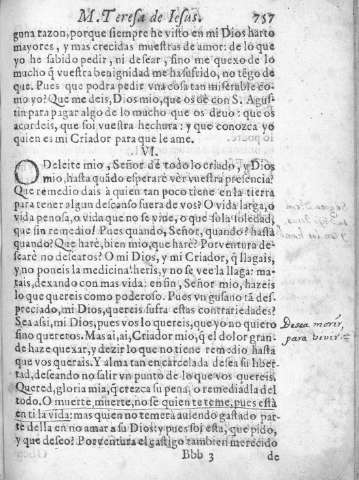 M. Teresa de Iesus. 757
guna razon, porque siempre he visto en mi Dios harto
mayores, y mas crecidas muestras de amor: de lo que
yo he sabido pedir, ni desear, sino me quexo de lo
mucho q̃ vuestra benignidad me ha sufrido, no tẽgo de
que. Pues que podra pedir vna cosa tan miserable co-
mo yo? Que me deis, Dios mio, que os dè con S. Agus-
tin para pagar algo de lo mucho que os deuo: que os
acordeis, que soi vuestra hechura: y que conozca yo
quien es mi Criador para que le ame.
VI.
O Deleite mio, Señor de todo lo criado, y Dios
mio, hasta quãdo esperarè vèr vuestra presencia?
Que remedio dais à quien tan poco tiene en la tierra
para tener algun descanso fuera de vos? O vida larga, o
vida penosa, o vida que no se vine, o que sola soledad,
que sin remedio! Pues quando, Señor, quando? hasta
quando? Que harè, bien mio, que harè? Por ventura de-
searè no desearos? O mi Dios, y mi Criador, q̃ llagais,
y no poneis la medicina! heris, y no se vee la llaga: ma-
tais, dexando con mas vida: en fin, Señor mio, hazeis
lo que quereis como poderoso. Pues vn gusano tã des-
preciado, mi Dios, quereis sufra estas contrariedades?
Sea assi, mi Dios, pues vos lo quereis, que yo no quiero
sino quereros. Mas ai, ai, Criador mio, q̃ el dolor gran-
de haze quexar, y dezir lo que no tiene remedio hasta
que vos querais. Y alma tan encarcelada desea su liber-
tad, deseando no salir vn punto de lo que vos quereis.
Quered, gloria mia, q̃ crezca su pena, o remediadla del
todo. O muerte, muerte, no se quien te teme, pues està
en ti la vida: mas quien no temerà auiendo gastado par-
te della en no amar a su Dios: y pues soi esta, que pido,
y que deseo? Por ventura el castigo tambien merecido
Bbb 3 de
Desea morir,
para vivir